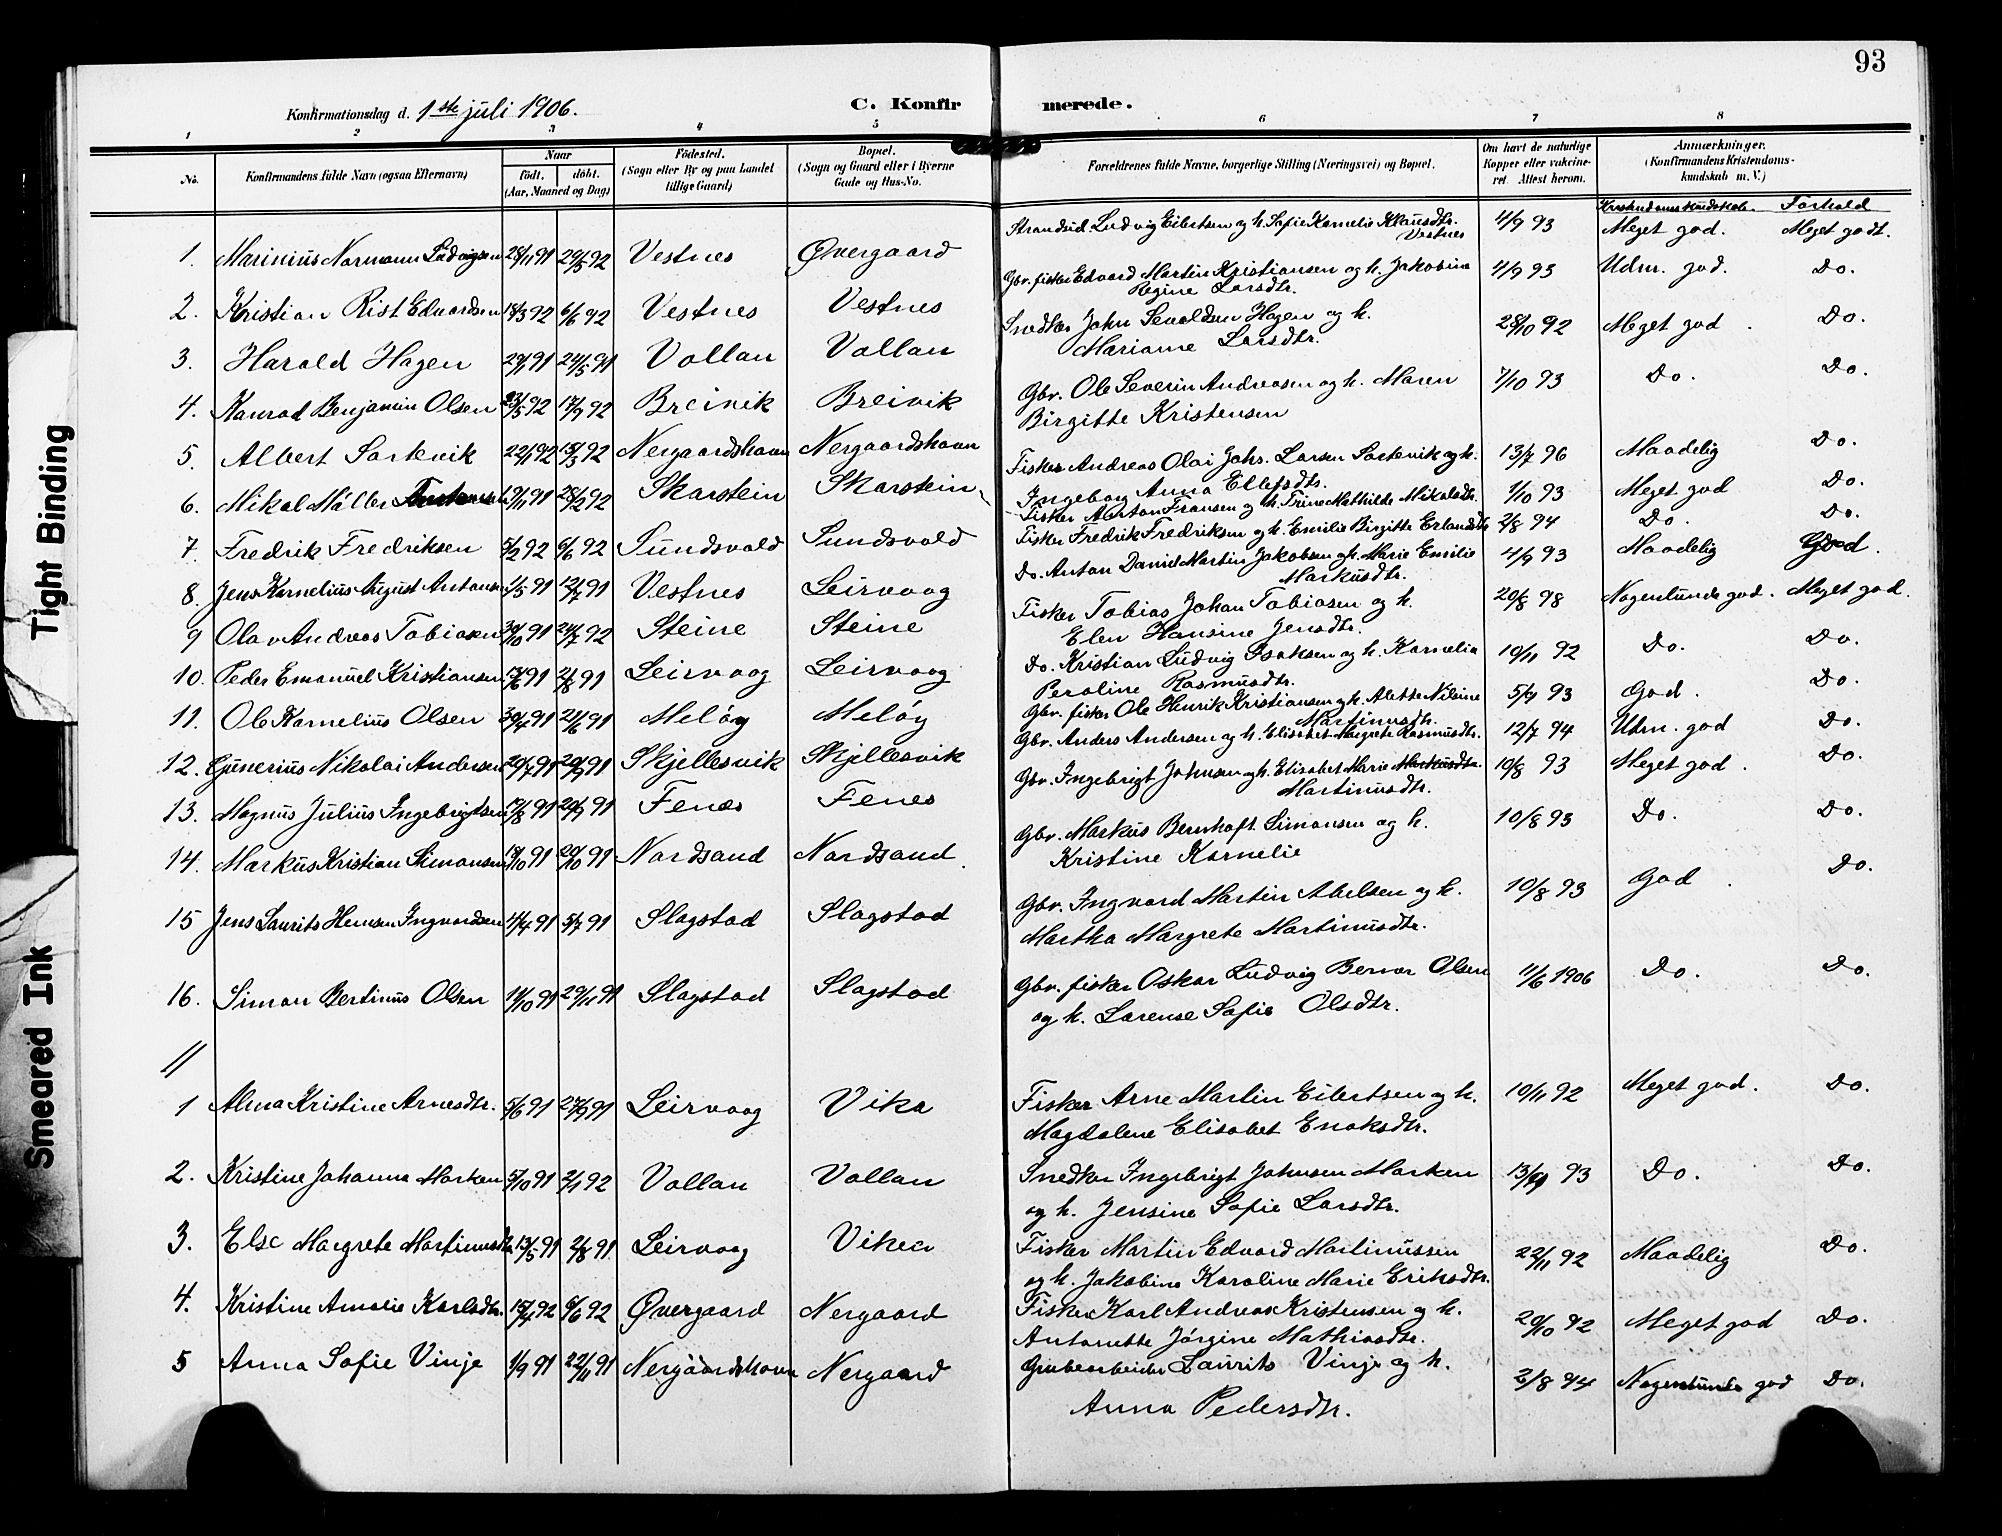 93
Konfirmationsdag d. 1ste juli 1906.
C. Konfirmerede.
1 2 3 4 5 6 7 8
No. Konfirmandens fulde Navn (ogsaa Efternavn) Naar født. døbt. (Aar, Maaned og Dag) Fødested. (Sogn eller By og paa Landet tillige Gaard) Bopæl. (Sogn og Gaard eller i Byerne Gade og Hus-No. Forældrenes fulde Navne, borgerlige Stilling (Næringsvei) og Bopæl. Om havt de naturlige Kopper eller vakcineret. Attest herom. Anmærkninger. (Konfirmandens Kristendomskundskab m. V.)
Kristendomskundskab. Forhold
1. Marinius Normann Ludvigsen 28/11 91 29/5 92 Vestnes Øvergaard Strandsid. Ludvig Eilertsen og h. Sofie Kornelie Klausdtr. Vestnes 4/9 93 Meget god. Meget godt.
2. Kristian Rist Edvardsen 18/3 92 6/6 92 Vestnes Vestnes Gbr. fisker Edvard Martin Kristiansen og h. Jakobine
Regine Larsdtr. 4/9 93 Udm. god. Do.
3. Harald Hagen 29/1 91 24/5 91 Vollan Vollan Snedker John Sevaldsen Hagen og h.
Marianne Larsdtr. 28/10 92 Meget god. Do.
4. Konrad Benjamin Olsen 23/5 92 17/9 92 Breivik Breivik Gbr. Ole Severin Andreasen og h. Maren
Birgitte Kristensen 7/10 93 Do. Do.
5. Albert Sortevik 22/1 92 13/3 92 Nergaardshavn Nergaardshavn Fisker Andreas Olai Johs. Larsen Sortevik og h.
Ingeborg Anna Ellefsdtr. 13/7 96 Maadelig Do.
6. Mikal Møller 19/11 91 28/2 92 Skarstein Skarstein Fisker Anton Fransen og h. Trine Mathilde Mikalsdtr. 1/10 93 Meget god Do.
7. Fredrik Fredriksen 5/2 92 6/6 92 Sundsvold Sundsvold Fisker Fredrik Fredriksen og h. Emilie Birgitte Erlandsdtr 2/8 94 Do. Do.
8. Jens Kornelius August Antonsen 1/5 91 12/7 91 Vestnes Leirvaag Do. Anton Daniel Martin Jakobsen og h. Marie Emilie
Markusdtr. 4/9 93 Maadelig God.
9 Olav Andreas Tobiasen 30/10 91 24/7 92 Steine Steine Fisker Tobias Johan Tobiasen og h.
Elen Hansine Jensdtr. 20/8 98 Nogenlunde god. Meget god.
10. Peder Emanuel Kristiansen 13/6 91 2/8 91 Leirvaag Leirvaag Do. Kristian Ludvig Isaksen og h. Kornelia
Peroline Rasmusdtr. 10/11 92 Do. Do.
11. Ole Kornelius Olsen 30/4 91 21/6 91 Meløy Meløy Gbr. fisker Ole Henrik Kristiansen og h. Alette Nilsine
Martinusdtr. 5/9 93 God. Do.
12. Gunerius Nikolai Andersen 29/7 91 20/9 91 Skjellesvik Skjellesvik Gbr. Anders Andersen og h. Elisabet Margrete Rasmusdtr. 12/7 94 Udm. god Do.
13. Magnus Julius Ingebrigtsen 19/8 91 20/9 91 Fenes Fenes Gbr. Ingebrigt Johnsen og h. Elisabet Marie Markusdtr.
Martinusdtr. 10/8 93 Meget god. Do.
14. Markus Kristian Simonsen 18/10 91 20/10 91 Nordsand Nordsand. Gbr. Markus Bernhoft Simonsen og h.
Kristine Kornelie 10/8 93 Do. Do.
15 Jens Laurits Hensen Ingvardsen 4/4 91 5/7 91 Slagstad Slagstad Gbr. Ingvard Martin Abelsen og h.
Martha Margrete Martinusdtr. 10/8 93 God. Do.
16. Simon Bertinus Olsen 11/10 91 29/11 91 Slagstad Slagstad Gbr. fisker Oskar Ludvig Berner Olsen
og h. Lorense Sofie Olsdtr. 11/6 1906 Do. Do.
1 Alma Kristine Arnesdtr. 5/6 91 27/9 91 Leirvaag Vika Fisker Arne Martin Eilertsen og h.
Magdalene Elisabet Enoksdtr. 10/11 92 Meget god. Do.
2. Kristine Johanna Marken 5/10 91 2/1 92 Vollan Vollan Snedker Ingebrigt Johnsen Marken
og h. Jensine Sofie Larsdtr. 13/9 93 Do. Do.
3. Else Margrete Martinusdtr. 13/5 91 2/8 91 Leirvaag Viken Fisker Martin Edvard Martinussen
og h. Jakobine Karoline Marie Eriksdtr. 22/11 92 Maadelig Do.
4. Kristine Amalie Karlsdtr. 15/4 92 6/6 92 Øvergaard Nergaard Fisker Karl Andreas Kristensen og h.
Antonette Jørgine Mathiasdtr. 20/10 92 Meget god Do.
5 Anna Sofie Vinje 1/9 91 22/11 91 Nergaardshavn Nergaard Grubearbeider Laurits Vinje og h.
Anna Pedersdtr. 2/8 94 Nogenlunde god Do.
Tight Binding
Smeared Ink